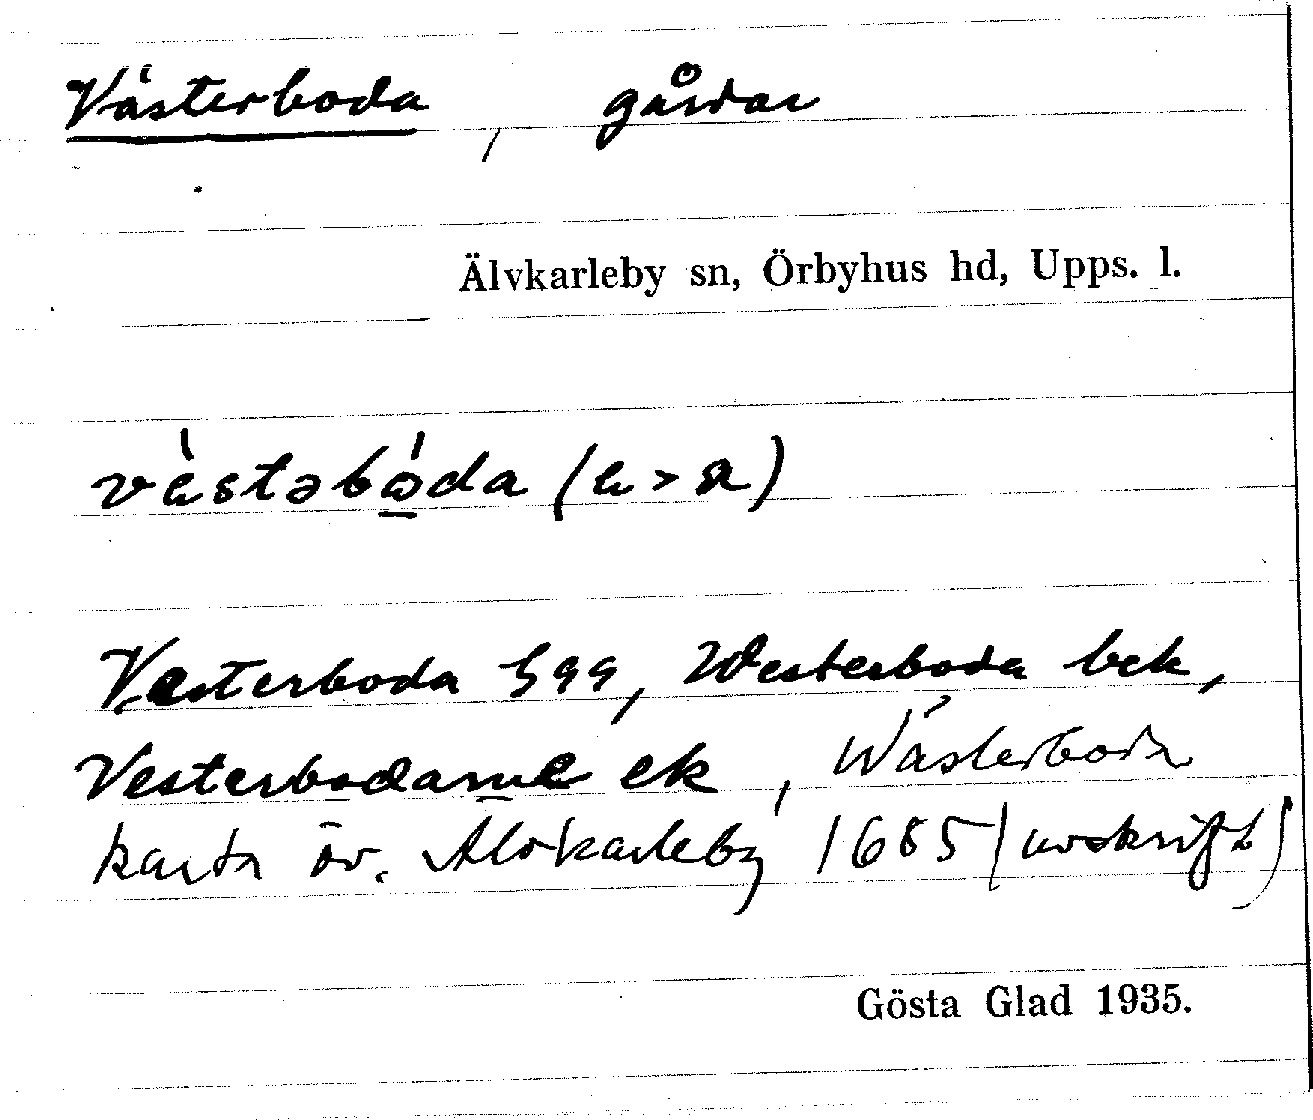 Västerboda, gårdar
Älvkarleby sn, Örbyhus hd, Upps. l.
Vesterboda Gge, Westerboda bek,
Vesterbodarne ek, Wästerboda
karta öv. Älvkarleby 1685 (avskrift)
Gösta Glad 1935.